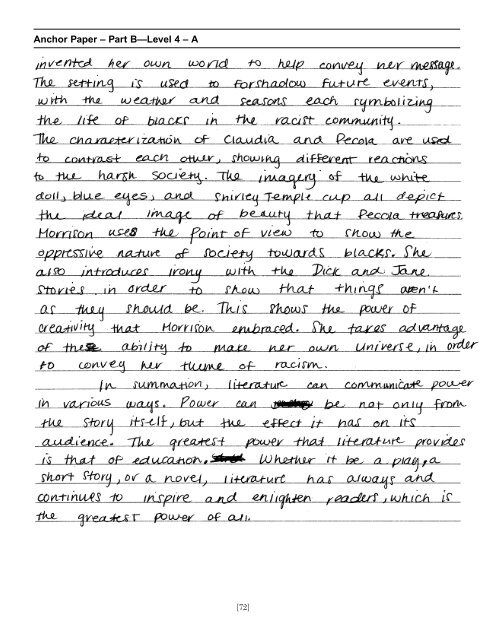 Anchor Paper – Part B—Level 4 – A
invented her own world to help convey her message.
The setting is used to forshadow future events,
with the weather and seasons each symbolizing
the life of blacks in the racist community.
The characterization of Claudia and Pecola are used
to contrast each other, showing different reactions
to the harsh society. The imagery of the white
doll, blue eyes, and Shirley Temple cup all depict
the ideal image of beauty that Pecola treasures.
Morrison uses the Point of view to show the
oppressive nature of society towards blacks. She
also introduces irony with the Dick and Jane
stories in order to show that things aren't
as they should be. This shows the power of
creativity that Morrison embraced. She takes advantage
of the ability to make her own Universe, in order
to convey her theme of racism.
In summation, literature can communicate power
in various ways. Power can be not only from
the story itself, but the effect it has on its
audience. The greatest power that literature provides
is that of education. Whether it be a play, a
short story, or a novel, literature has always and
continues to inspire and enlighten readers, which is
the greatest power of all.
[72]